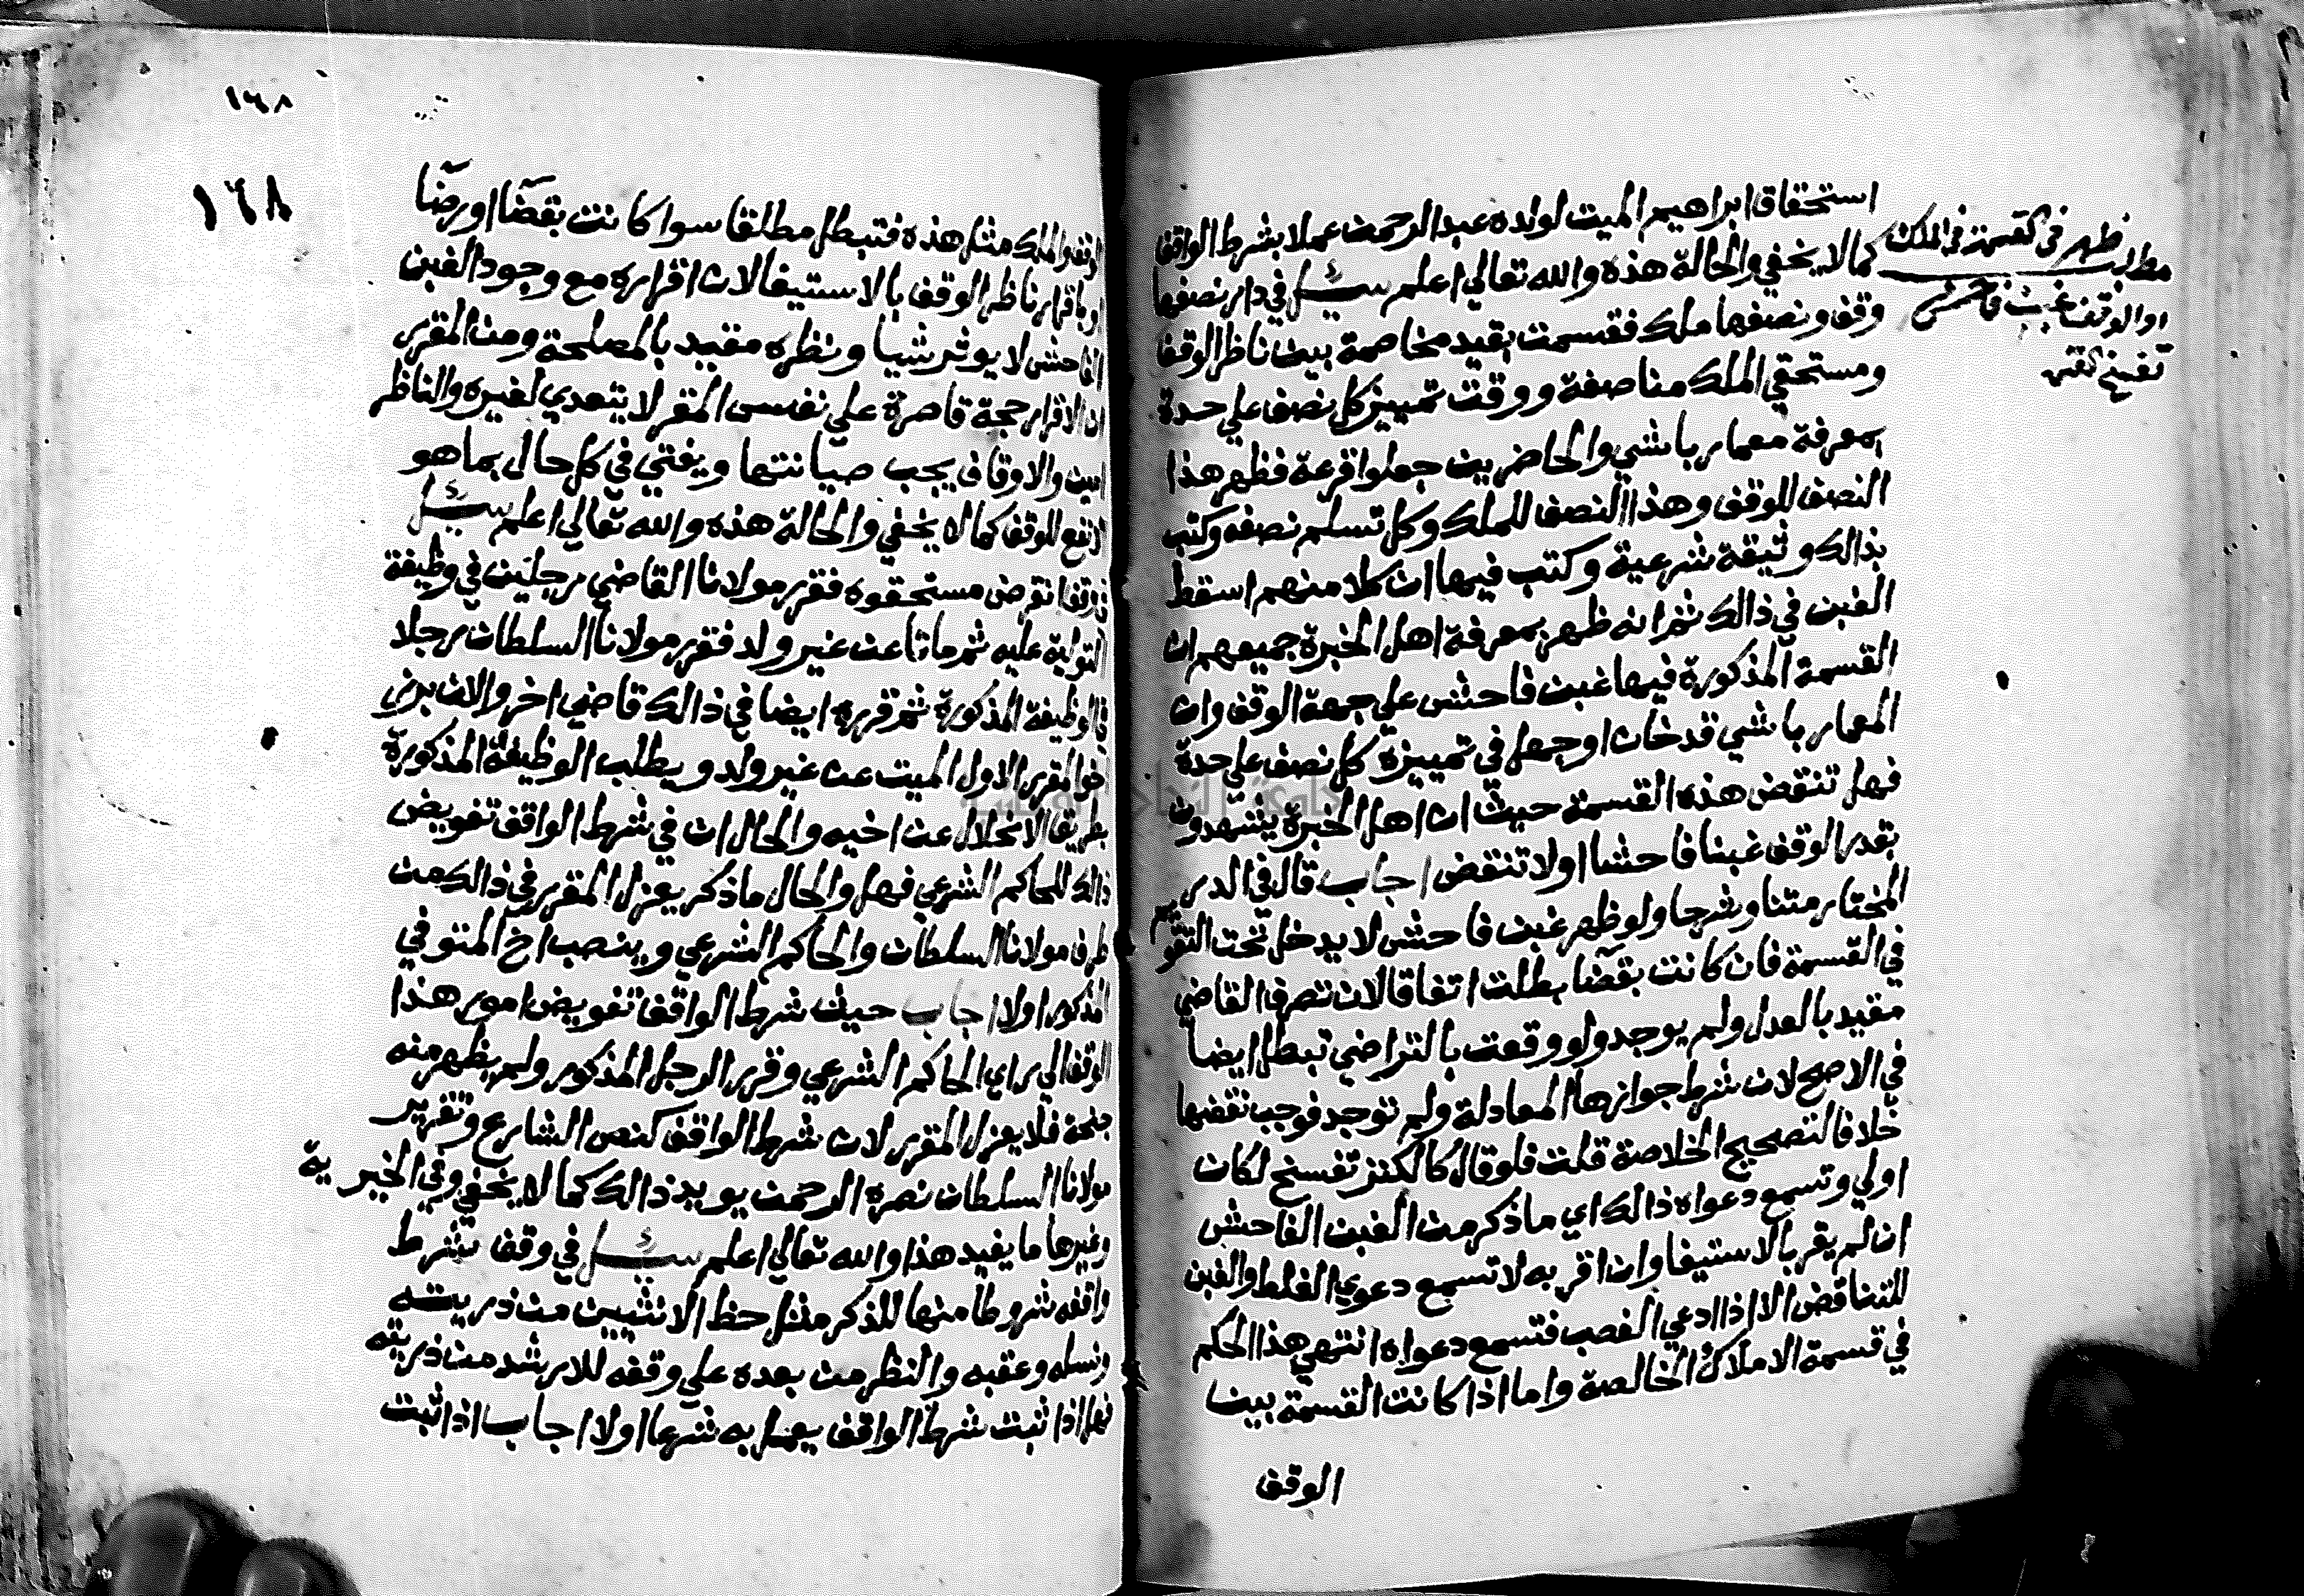 استحقاق ابراهيم الميت لولده عبد الرحمن عملا بشرط الواقف
كما لا يخفي والحالة هذه والله تعالي اعلم سئل في دار نصفها
وقف ونصفها ملك فقسمت بقيد مخاصمة بين ناظر الوقف
ومستحقي الملك مناصفة ووقت تمييز كل نصف علي حدة
بمعرفة معمار باشي والحاضرين جعلوا قرعة فظهر هذا
النصف للوقف وهذا النصف للملك وكل تسلم نصفه وكتب
بذالك وثيقة شرعية وكتب فيها ان كلا منهم اسقط
الغبن في ذالك ثم انه ظهر بمعرفة اهل الخبرة جميعهم ان
القسمة المذكورة فيها غبن فاحش علي جهة الوقف وان
المعمار باشي قد خان اوجهل في تمييزه كل نصف علي حدة
فهل تنقض هذه القسمة حيث ان اهل الخبرة يشهدون
بقدر الوقف غبنا فاحشا اولا تنقض اجاب قال في الدر
المختار متنا وشرحا ولو ظهر غبن فاحش لا يدخل تحت التقويم
في القسمة فان كانت بقضا بطلت اتفاقا لان تصرف القاضي
مقيد بالعدل ولم يوجد ولو وقعت بالتراضي تبطل ايضا
في الاصح لان شرط جوازها المعادلة ولم توجد فوجب نقضها
خلافا لتصحيح الخلاصة قلت فلو قال كالكنز تفسخ لكان
اولي وتسمع دعواه ذالك اي ما ذكر من الغبن الفاحش
ان لم يقر بالاستيفا وان اقر به لا تسمع دعوي الغلط والغبن
للتناقض الا اذا ادعي الغصب فتسمع دعواه انتهي هذا الحكم
في قسمة الاملاك الخالصة واما اذا كانت القسمة بين
الوقف
مطلب ظهر في القسمة في الملك
او الوقف غبن فاحش
تفسخ
١٦٨
١٦٨
الوقف والملك مثل هذه فتبطل مطلقا سوا كانت بقضا او رضا
او باقرار ناظر الوقف بالاستيفا لان اقراره مع وجود الغبن
الفاحش لا يوثر شيا ونظره مقيد بالمصلحة ومن المقرر
ان الاقرار حجة قاصرة علي نفس المقر لا يتعدي لغيره والناظر
امين والاوقاف يجب صيانتها ويفتي في كل حال بما هو
انفع للوقف كما لا يخفي والحالة هذه والله تعالي اعلم سئل
في وقف انقرض مستحقوه فقرر مولانا القاضي رجلين في وظيفة
التولية عليه ثم ماتا عن غير ولد فقرر مولانا السلطان رجلا
في الوظيفة المذكورة ثم قرره ايضا في ذالك قاضي اخر والان برز
اخو المقرر الاول الميت عن غير ولد ويطلب الوظيفة المذكورة
بطريق الانحلال عن اخيه والحال ان في شرط الواقف تفويض
ذالك للحاكم الشرعي فهل والحال ما ذكر يعزل المقرر في ذالك من
طرف مولانا السلطان والحاكم الشرعي وينصب اخ المتوفي
المذكور اولا اجاب حيث شرط الواقف تفويض امور هذا
الوقف الي راي الحاكم الشرعي وقرر الرجل المذكور ولم يظهر منه
جنحة فلا يعزل المقرر لان شرط الواقف كنص الشارع وتقرير
مولانا السلطان نصره الرحمن يويد ذالك كما لا يخفي وفي الخيرية
وغيرها ما يفيد هذا والله تعالي اعلم سئل في وقف شرط
واقفه شروطا منها للذكر مثل حظ الانثيين من ذريته
ونسله وعقبه والنظر من بعده علي وقفه للارشد من ذريته
فهل اذا ثبت شرط الواقف يعمل به شرعا اولا اجاب اذا ثبت